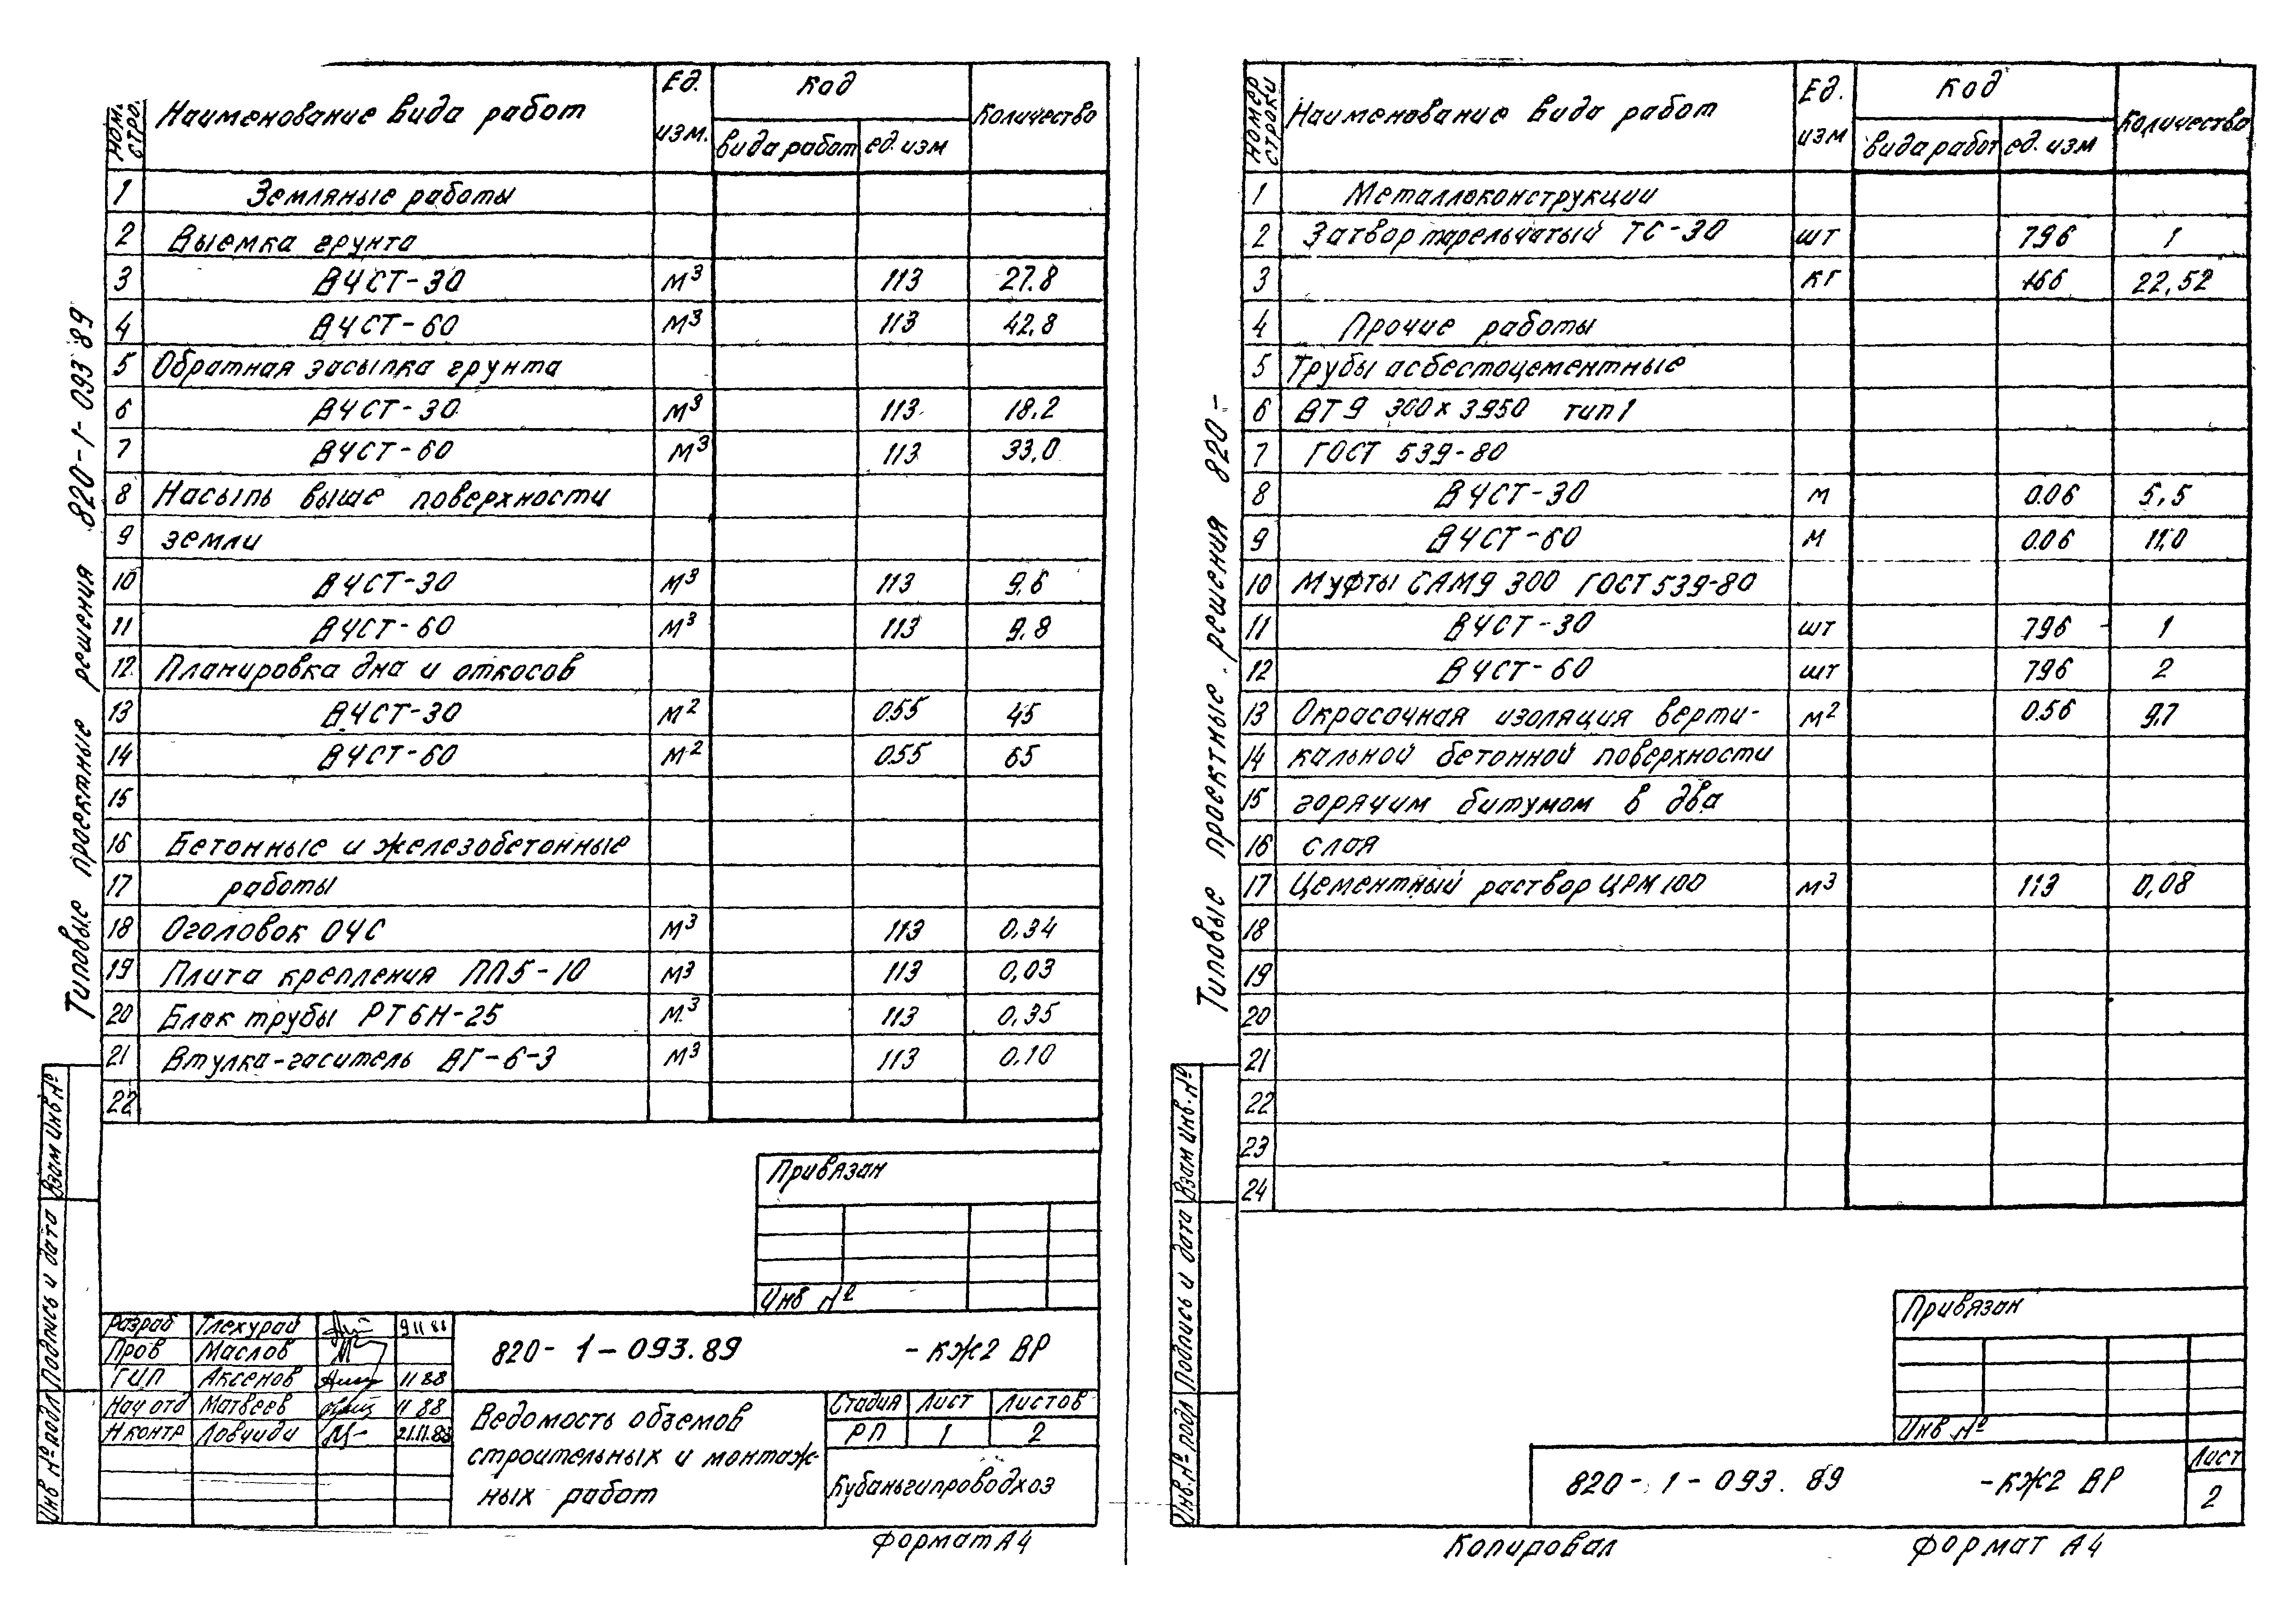 Типовые проектные решения 820-1-093 89
Ном. стро. Наименование вида работ Ед. изм. Код Количество
вида работ ед. изм
1 Земляные работы
2 Выемка грунта
3 ВЧСТ-30 м³ 113 27.8
4 ВЧСТ-60 м³ 113 42,8
5 Обратная засыпка грунта
6 ВЧСТ-30 м³ 113 18,2
7 ВЧСТ-60 м³ 113 33,0
8 Насыпь выше поверхности
9 земли
10 ВЧСТ-30 м³ 113 9,6
11 ВЧСТ-60 м³ 113 9,8
12 Планировка дна и откосов
13 ВЧСТ-30 м² 055 45
14 ВЧСТ-60 м² 055 65
15
16 Бетонные и железобетонные
17 работы
18 Оголовок ОЧС м³ 113 0,34
19 Плита крепления ПП5-10 м³ 113 0,03
20 Блок трубы РТ6Н-25 м³ 113 0,35
21 Втулка-гаситель ВГ-6-3 м³ 113 0,10
22
Привязан
Инв №
Разраб Тлехурай 9 11 88
Пров Маслов
ГИП Аксенов 11 88
Нач отд Матвеев 11 88
Н контр Ловчиди 21.11.88
820-1-093.89 -КЖ2 ВР
Ведомость объемов
строительных и монтаж-
ных работ
Стадия Лист Листов
РП 1 2
Кубаньгипроводхоз
Инв № подл Подпись и дата Взам Инв №
Формат А4
Типовые проектные решения 820-
Номер строки Наименование вида работ Ед. изм Код Количество
вида работ ед. изм
1 Металлоконструкции
2 Затвор тарельчатый ТС-30 шт 796 1
3 кг 166 22,52
4 Прочие работы
5 Трубы асбестоцементные
6 ВТ9 300х3950 тип 1
7 ГОСТ 539-80
8 ВЧСТ-30 м 006 5,5
9 ВЧСТ-60 м 006 11,0
10 Муфты САМ9 300 ГОСТ 539-80
11 ВЧСТ-30 шт 796 1
12 ВЧСТ-60 шт 796 2
13 Окрасочная изоляция верти- м² 056 9,7
14 кальной бетонной поверхности
15 горячим битумом в два
16 слоя
17 Цементный раствор ЦРМ100 м³ 113 0,08
18
19
20
21
22
23
24
Привязан
Инв №
820-1-093.89 -КЖ2 ВР
Лист
2
Инв.№ подл Подпись и дата Взам Инв.№
Копировал Формат А4